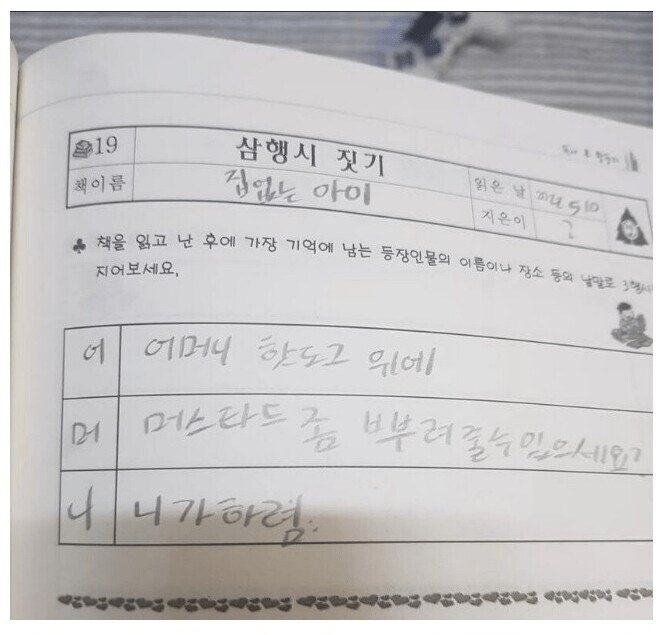 19 삼행시 짓기
책이름 집없는 아이 읽은 날
지은이 ?
책을 읽고 난 후에 가장 기억에 남는 등장인물의 이름이나 장소 등의 낱말로 3행시
지어보세요.
어 어머니 핫도그 위에
머 머스타드 좀 ᄇ부려줄수있으세요?
니 니가하렴.